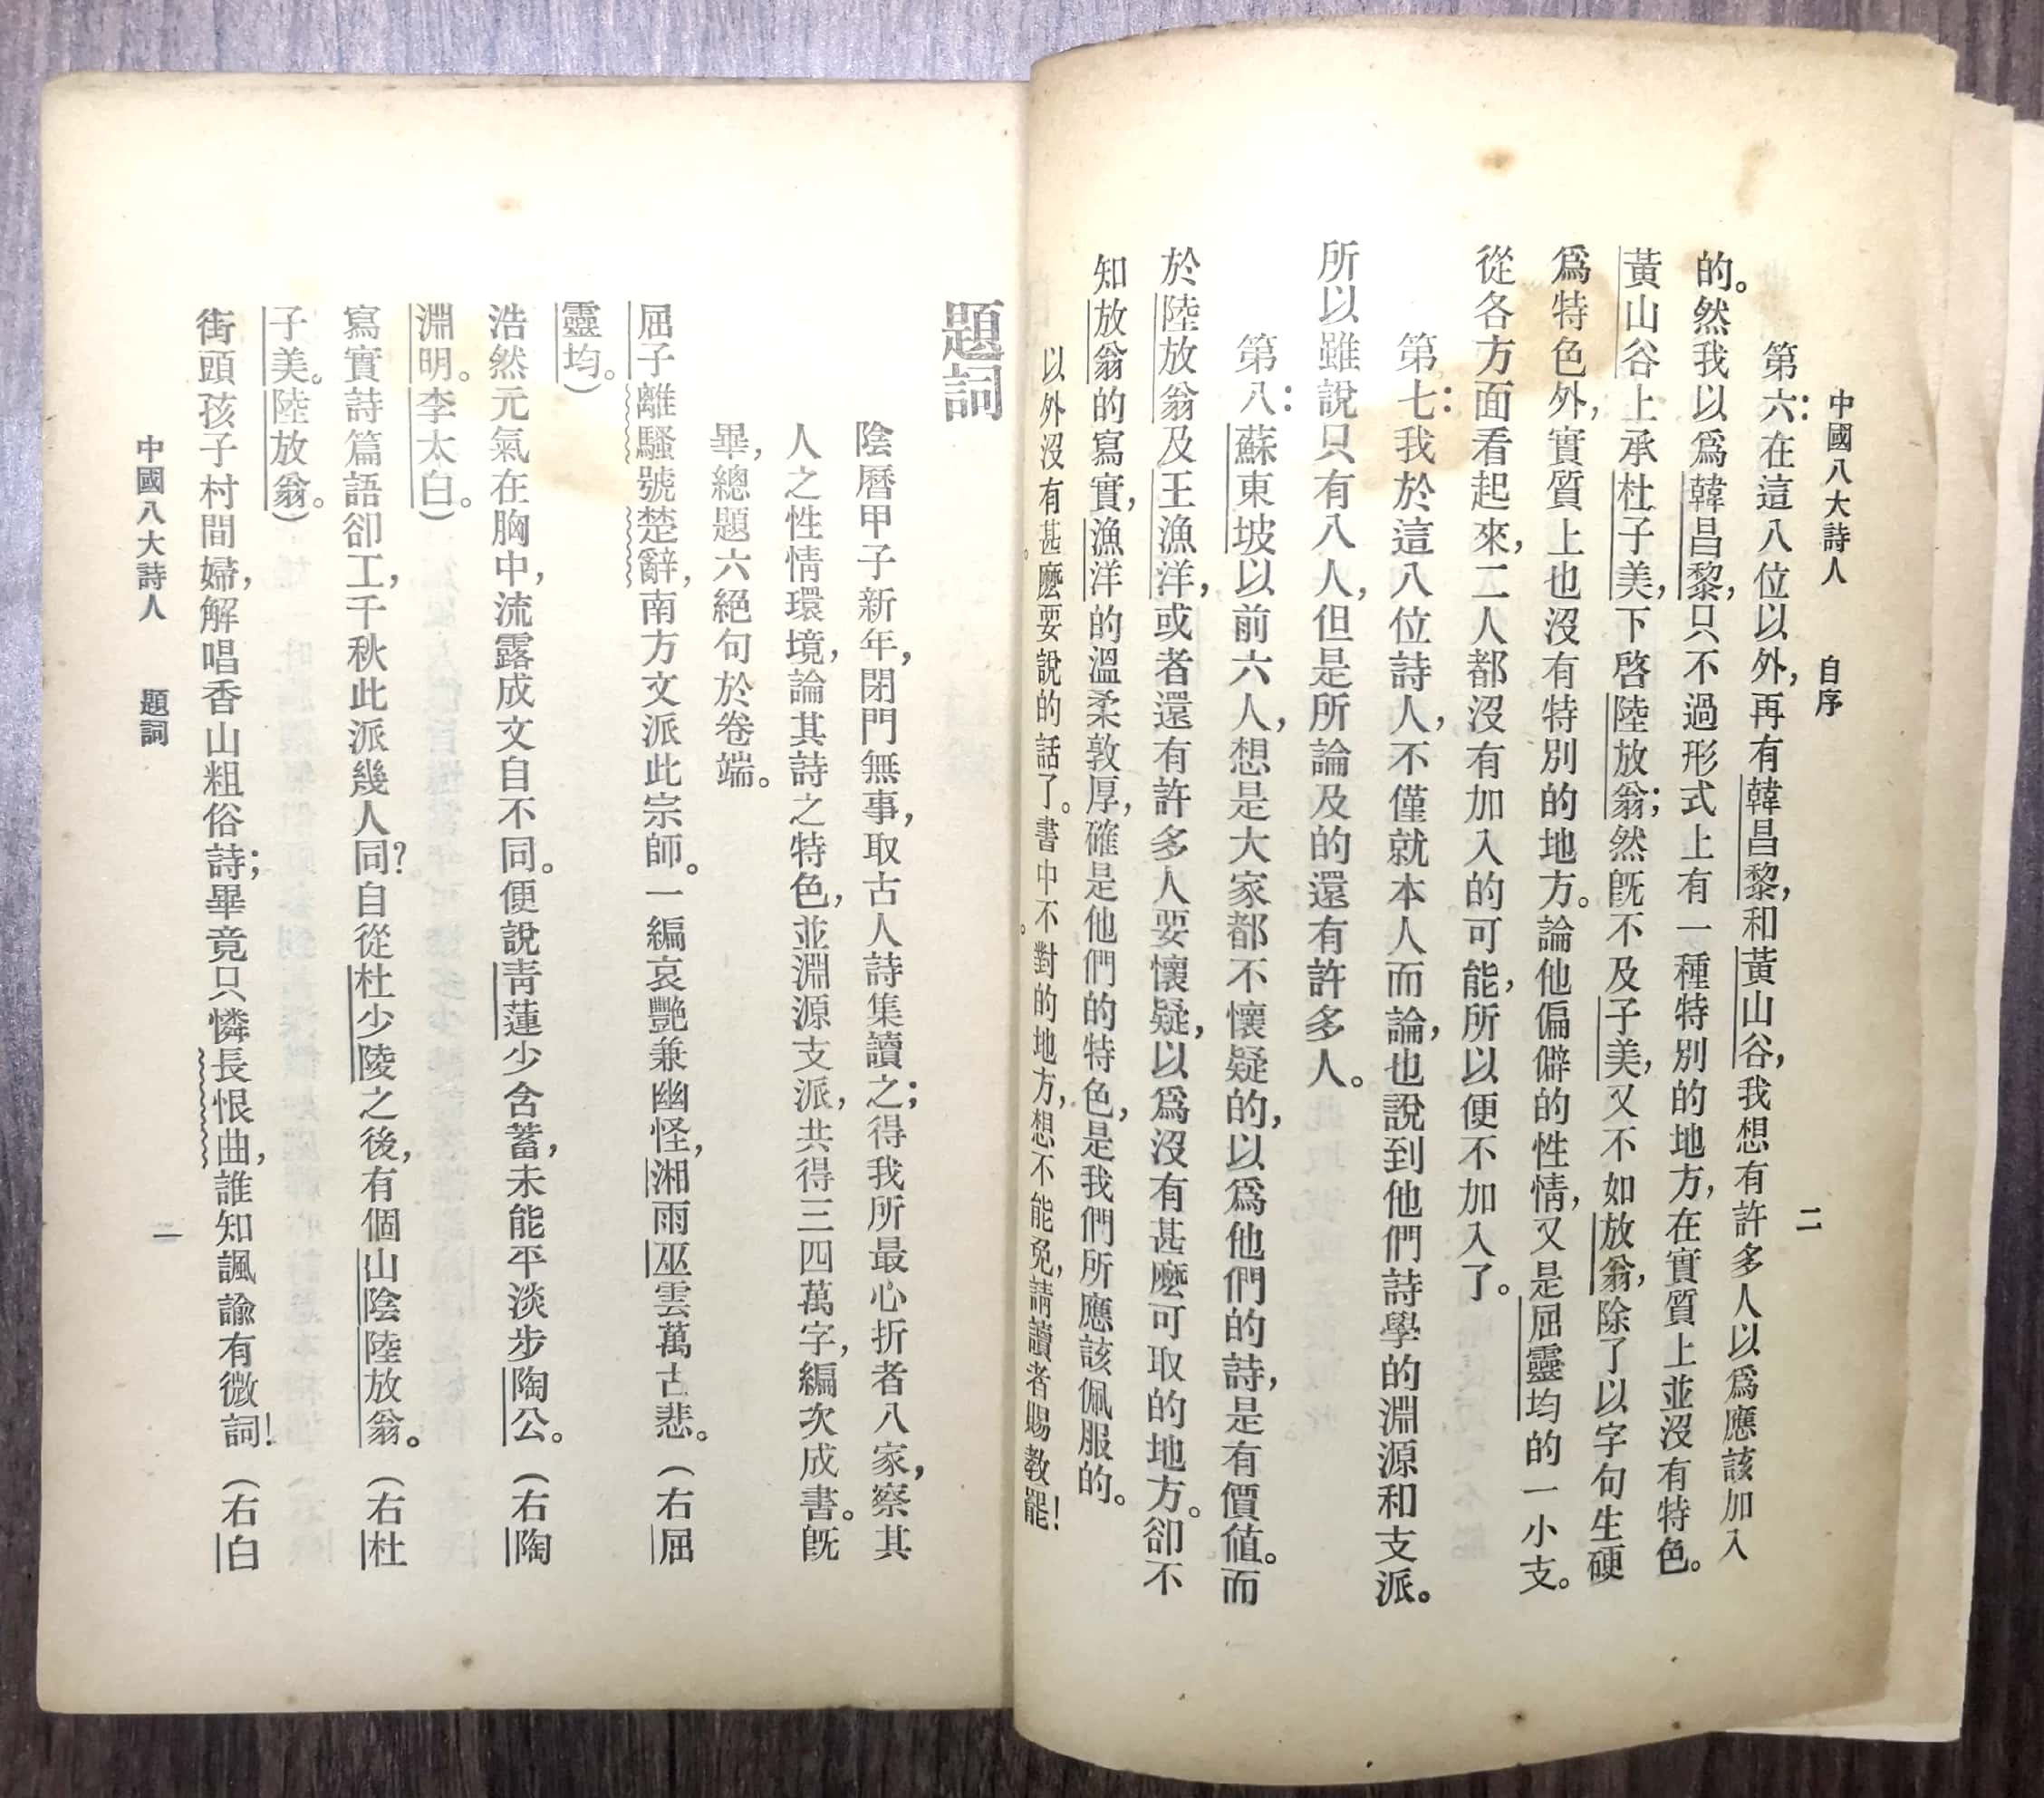 中國八大詩人　自序　二
第六：在這八位以外，再有韓昌黎，和黃山谷，我想有許多人以爲應該加入
的。然我以爲韓昌黎，只不過形式上有一種特別的地方，在實質上並沒有特色。
黃山谷上承杜子美，下啓陸放翁；然旣不及子美，又不如放翁，除了以字句生硬
爲特色外，實質上也沒有特別的地方。論他偏僻的性情，又是屈靈均的一小支。
從各方面看起來，二人都沒有加入的可能，所以便不加入了。
第七：我於這八位詩人，不僅就本人而論，也說到他們詩學的淵源和支派。
所以雖說只有八人，但是所論及的還有許多人。
第八：蘇東坡以前六人，想是大家都不懷疑的，以爲他們的詩，是有價値。而
於陸放翁及王漁洋，或者還有許多人要懷疑，以爲沒有甚麽可取的地方。卻不
知放翁的寫實，漁洋的溫柔敦厚，確是他們的特色，是我們所應該佩服的。
以外沒有甚麽要說的話了。書中不對的地方，想不能免，請讀者賜教罷！
題詞
陰曆甲子新年，閉門無事，取古人詩集讀之；得我所最心折者八家，察其
人之性情環境，論其詩之特色，並淵源支派，共得三四萬字，編次成書。旣
畢，總題六絕句於卷端。
屈子離騷號楚辭，南方文派此宗師。一編哀艷兼幽怪，湘雨巫雲萬古悲。（右屈
靈均。）
浩然元氣在胸中，流露成文自不同。便說靑蓮少含蓄，未能平淡步陶公。（右陶
淵明。李太白。）
寫實詩篇語卻工，千秋此派幾人同？自從杜少陵之後，有個山陰陸放翁。（右杜
子美。陸放翁。）
街頭孩子村間婦，解唱香山粗俗詩；畢竟只憐長恨曲，誰知諷諭有微詞！（右白
中國八大詩人　題詞　一